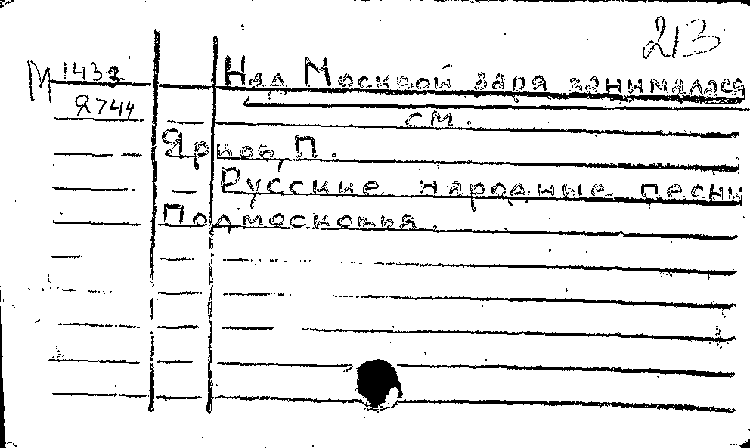 213
М 1433 Над Москвой заря занималася
Я744 см.
Ярков, П.
Русские народные песни
Подмосковья.